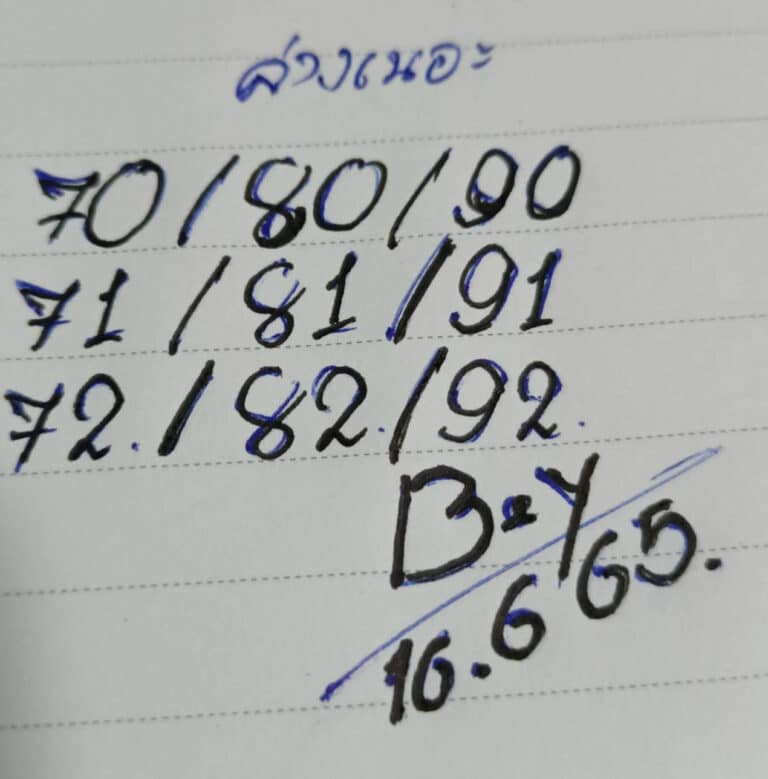 ล่างเนอะ
70/80/90
71/81/91
72./82./92.
B=Y
16.6 65.